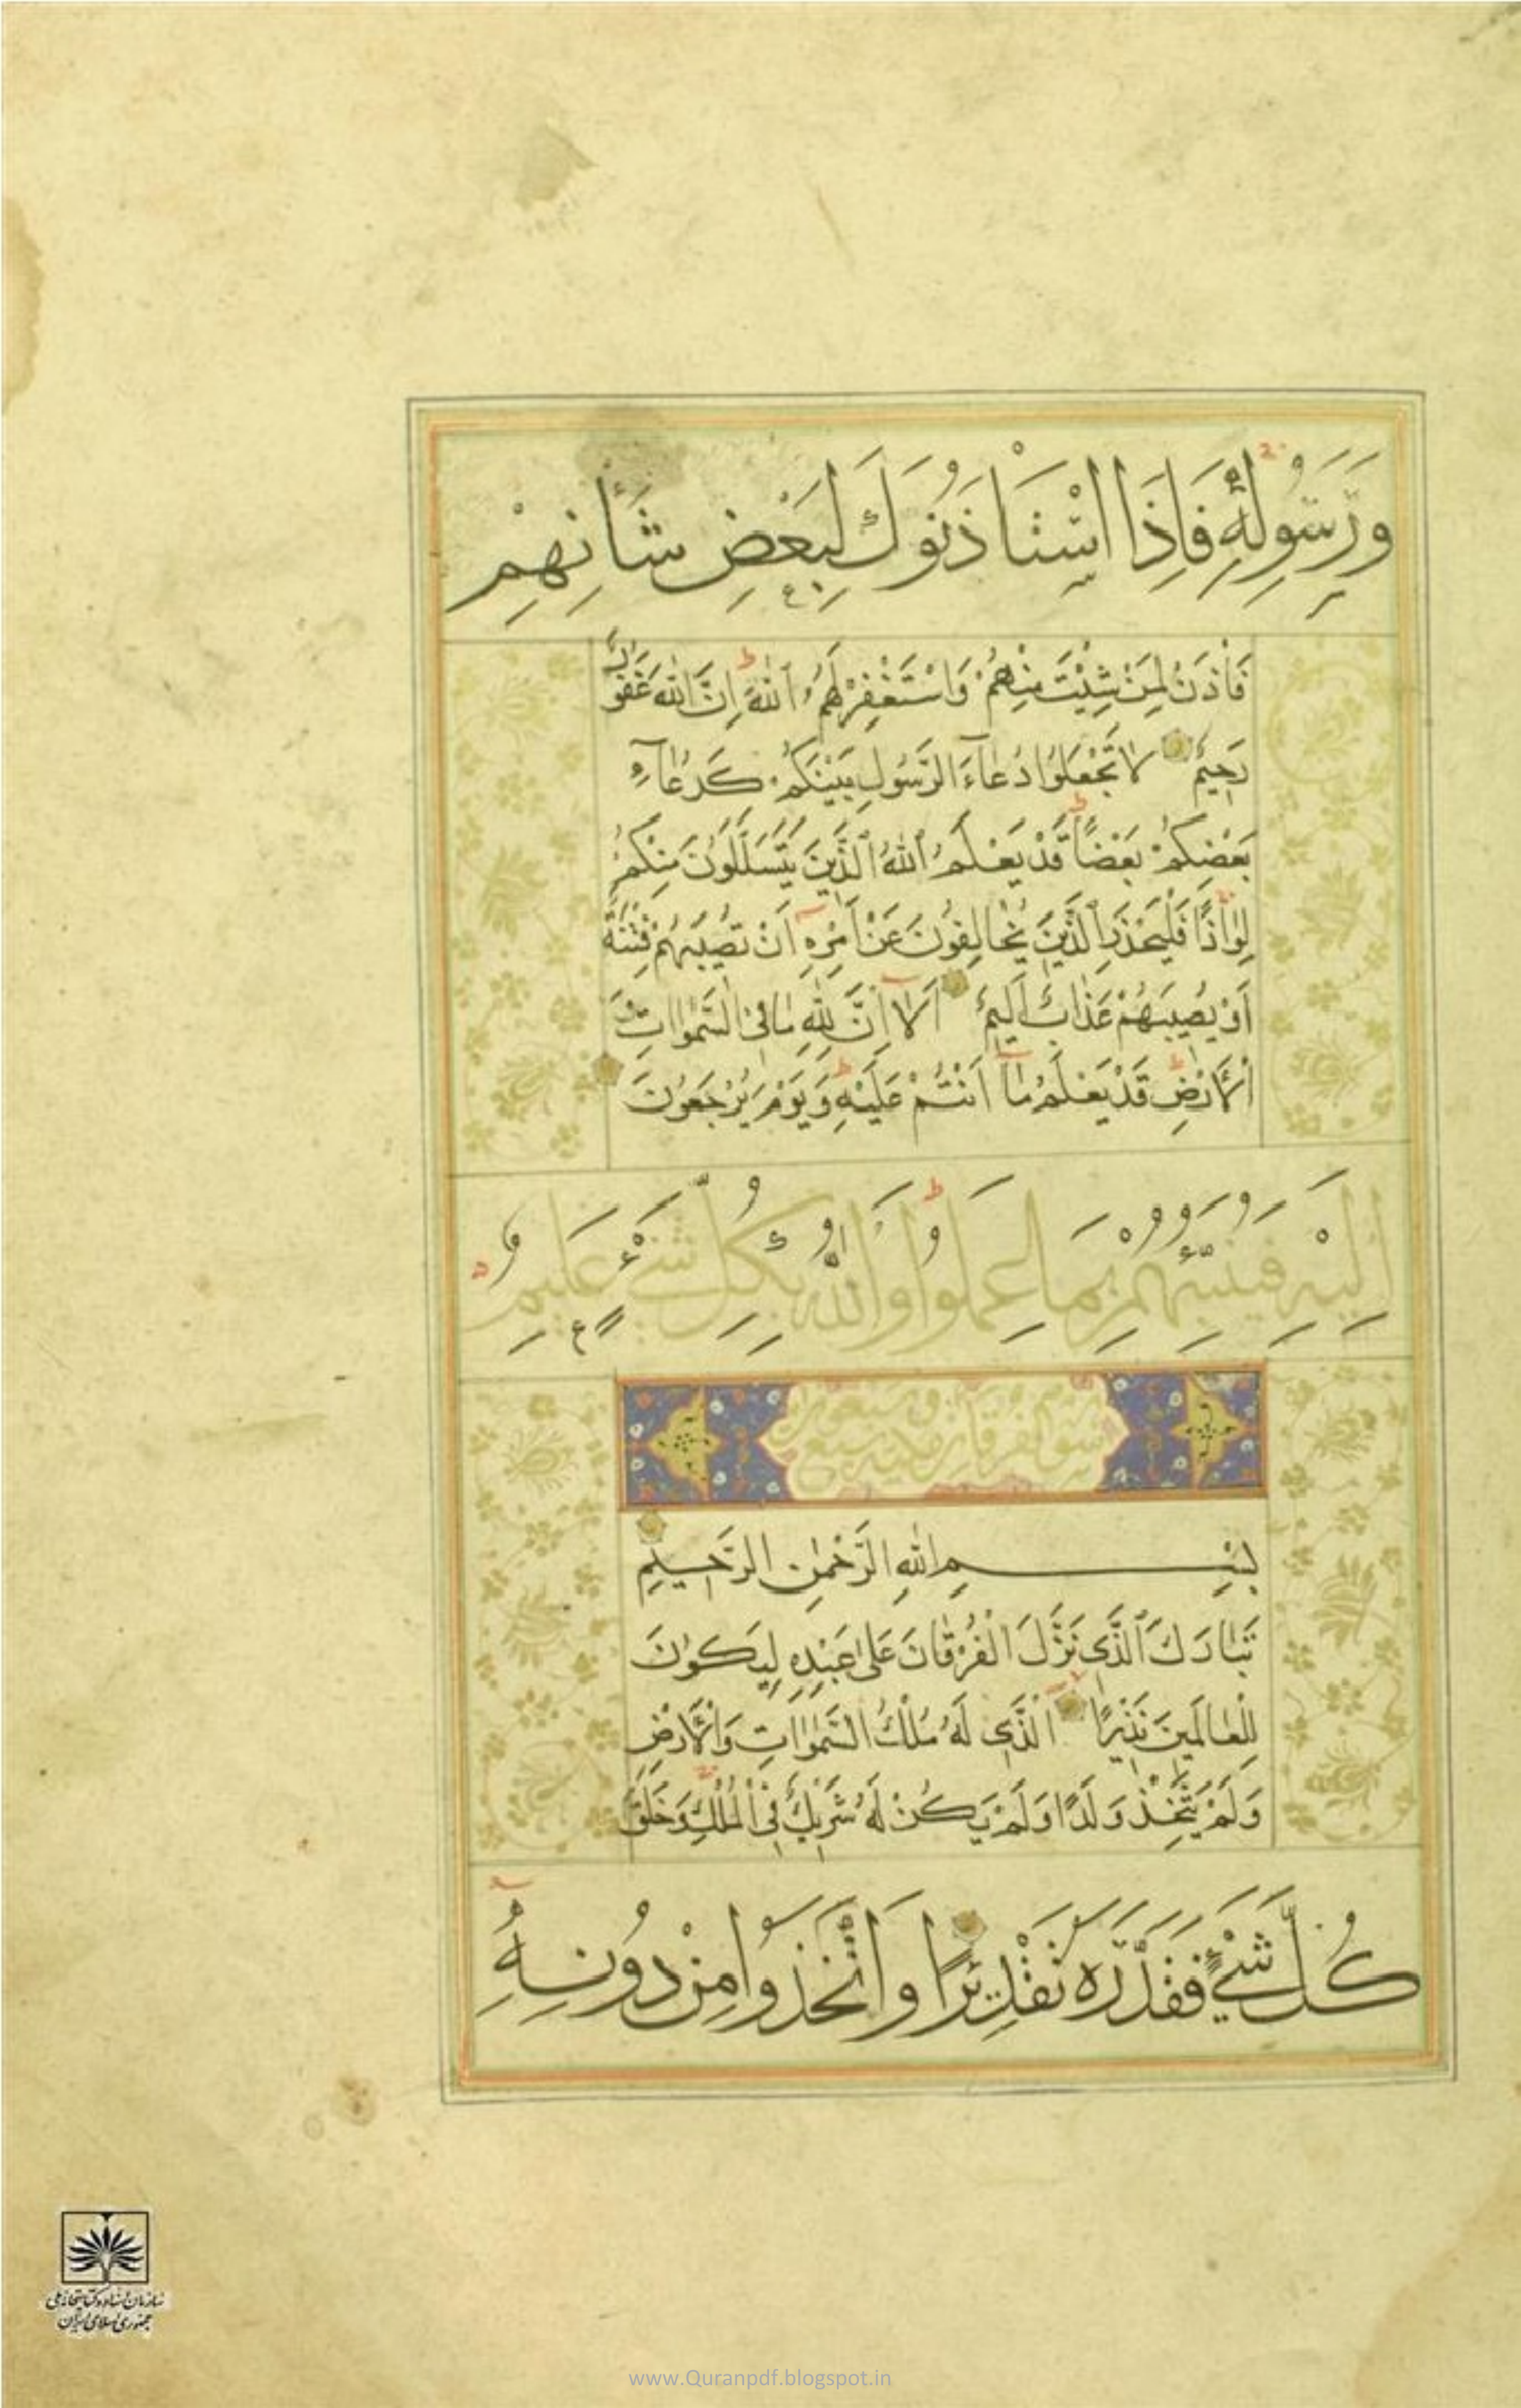 وَرَسُولِهِ فَاِذَا اسْتَاْذَنُوكَ لِبَعْضِ شَاْنِهِمْ
فَاْذَنْ لِمَنْ شِئْتَ مِنْهُمْ وَاسْتَغْفِرْ لَهُمُ اللّٰهَ اِنَّ اللّٰهَ غَفُورٌ
رَحِيمٌ لَا تَجْعَلُوا دُعَاءَ الرَّسُولِ بَيْنَكُمْ كَدُعَاءِ
بَعْضِكُمْ بَعْضًا قَدْ يَعْلَمُ اللّٰهُ الَّذِينَ يَتَسَلَّلُونَ مِنْكُمْ
لِوَاذًا فَلْيَحْذَرِ الَّذِينَ يُخَالِفُونَ عَنْ اَمْرِهِ اَنْ تُصِيبَهُمْ فِتْنَةٌ
اَوْ يُصِيبَهُمْ عَذَابٌ اَلِيمٌ اَلَا اِنَّ لِلّٰهِ مَا فِي السَّمٰوَاتِ وَ
الْاَرْضِ قَدْ يَعْلَمُ مَا اَنْتُمْ عَلَيْهِ وَيَوْمَ يُرْجَعُونَ
اِلَيْهِ فَيُنَبِّئُهُمْ بِمَا عَمِلُوا وَاللّٰهُ بِكُلِّ شَيْءٍ عَلِيمٌ
بِسْمِ اللّٰهِ الرَّحْمٰنِ الرَّحِيمِ
تَبَارَكَ الَّذِي نَزَّلَ الْفُرْقَانَ عَلٰى عَبْدِهِ لِيَكُونَ
لِلْعَالَمِينَ نَذِيرًا الَّذِي لَهُ مُلْكُ السَّمٰوَاتِ وَالْاَرْضِ
وَلَمْ يَتَّخِذْ وَلَدًا وَلَمْ يَكُنْ لَهُ شَرِيكٌ فِي الْمُلْكِ وَخَلَقَ
كُلَّ شَيْءٍ فَقَدَّرَهُ تَقْدِيرًا وَاتَّخَذُوا مِنْ دُونِهِ
سازمان اسناد و کتابخانه ملی
جمهوری اسلامی ایران
www.Quranpdf.blogspot.in